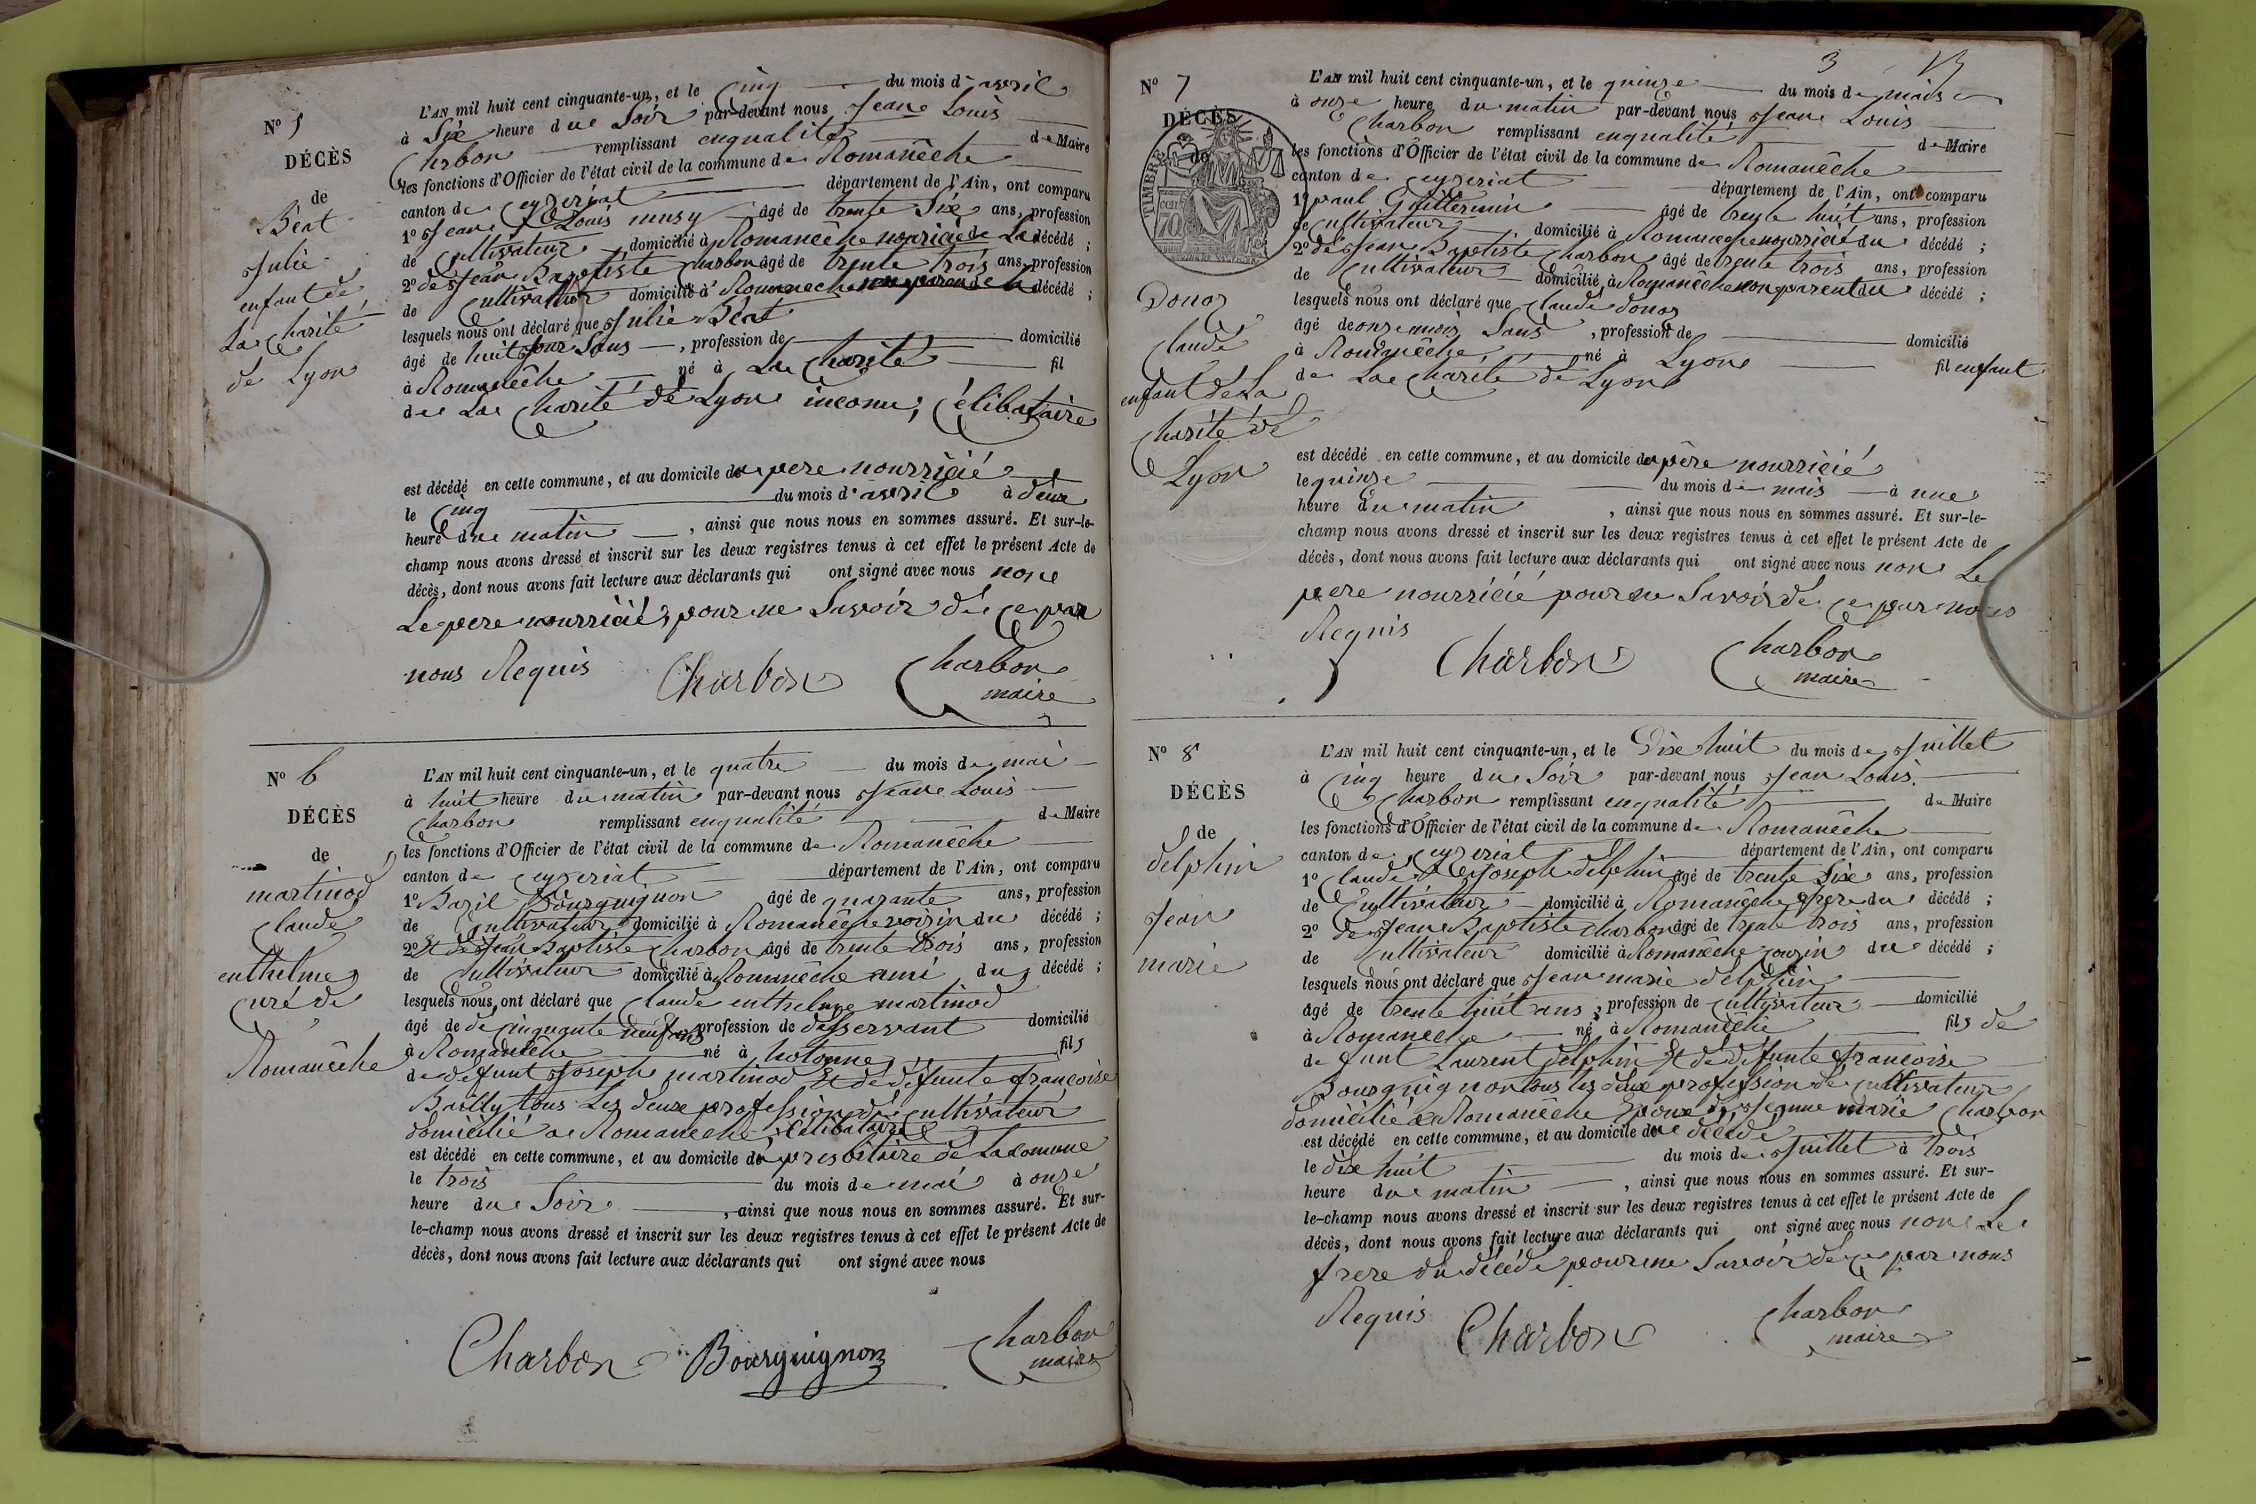 N° 5
DÉCÈS
de
Béat
Julie
enfant de
La Charité
de Lyon
L'AN mil huit cent cinquante-un, et le Cinq du mois d'avril
à Six heure due Soir par-devant nous Jean Louis
Charbon remplissant enqualité de Maire
les fonctions d'Officier de l'état civil de la commune de Romanêche
canton de Ceyzeriat département de l'Ain, ont comparu
1° Jean Louis musy âgé de trente Six ans, profession
de Cultivateur domicilié à Romanêche nourricié de La décédé ;
2° de Jean Baptiste Charbon âgé de trente trois ans, profession
de Cultivateur domicilié à Romaneche non parent de la décédé ;
lesquels nous ont déclaré que Julie Béat
âgé de huit jour Sans , profession de domicilié
à Romanêche né à La Charité fil
de La Charité de Lyon inconu, Célibataire
est décédé en cette commune, et au domicile du pere nourricié
le Cinq du mois d'avril à deux
heure due matin , ainsi que nous nous en sommes assuré. Et sur-le-
champ nous avons dressé et inscrit sur les deux registres tenus à cet effet le présent Acte de
décès, dont nous avons fait lecture aux déclarants qui ont signé avec nous non
Le pere nourricié pour ne Savoir de ce par
nous Requis Charbon Charbon
maire
N° 6
DÉCÈS
de
martinod
Claude
enthelme
Curé de
Romanêche
L'AN mil huit cent cinquante-un, et le quatre du mois de mai
à huit heure du matin par-devant nous Jean Louis
Charbon remplissant enqualité de Maire
les fonctions d'Officier de l'état civil de la commune de Romanêche
canton de Ceyzeriat département de l'Ain, ont comparu
1° Bazil Bourguignon âgé de quarante ans, profession
de Cultivateur domicilié à Romanêche voisin du décédé ;
2° Et de Jean Baptiste Charbon âgé de trente trois ans, profession
de Cultivateur domicilié à Romanêche ami du décédé ;
lesquels nous ont déclaré que Claude enthelme martinod
âgé de de Cinquante neuf ans profession de desservant domicilié
à Romanêche né à hotonne fils
de défunt Joseph martinod Et de défunte françoise
Bailly tous Les deux profession de Cultivateur
domicilié a Romaneche, Célibataire
est décédé en cette commune, et au domicile du presbitaire de La Comune
le trois du mois de mai à onze
heure due Soir , ainsi que nous nous en sommes assuré. Et sur-
le-champ nous avons dressé et inscrit sur les deux registres tenus à cet effet le présent Acte de
décès, dont nous avons fait lecture aux déclarants qui ont signé avec nous
Charbon Bourguignon Charbon
maire
3 13
N° 7
DÉCÈS
de
TIMBRE
70
Donoz
Claude
enfant de La
Charité de
Lyon
L'AN mil huit cent cinquante-un, et le quinze du mois de mais
à onze heure du matin par-devant nous Jean Louis
Charbon remplissant enqualité de Maire
les fonctions d'Officier de l'état civil de la commune de Romanêche
canton de Ceyzeriat département de l'Ain, ont comparu
1° paul Guillermin âgé de trente huit ans, profession
de Cultivateur domicilié à Romaneche nourricié du décédé ;
2° de Jean Baptiste Charbon âgé de trente trois ans, profession
de Cultivateur domicilié à Romanêche non parent du décédé ;
lesquels nous ont déclaré que Claude donoz
âgé de onze mois Sans , profession de domicilié
à Romanêche né à Lyon fil enfant
de La Charité de Lyon
est décédé en cette commune, et au domicile du père nourricié
le quinze du mois de mais à une
heure du matin , ainsi que nous nous en sommes assuré. Et sur-le-
champ nous avons dressé et inscrit sur les deux registres tenus à cet effet le présent Acte de
décès, dont nous avons fait lecture aux déclarants qui ont signé avec nous non Le
pere nourricié pour ne Savoir de ce par nous
Requis Charbon Charbon
maire
N° 8
DÉCÈS
de
delphin
Jean
marie
L'AN mil huit cent cinquante-un, et le Dix huit du mois de Juillet
à Cinq heure due Soir par-devant nous Jean Louis
Charbon remplissant enqualité de Maire
les fonctions d'Officier de l'état civil de la commune de Romanêche
canton de Ceyzeriat département de l'Ain, ont comparu
1° Claude Joseph delphin âgé de trente Six ans, profession
de Cultivateur domicilié à Romanêche frere du décédé ;
2° de Jean Baptiste Charbon âgé de trente trois ans, profession
de Cultivateur domicilié à Romanêche cousin du décédé ;
lesquels nous ont déclaré que Jean marie delphin
âgé de trente huit ans , profession de Cultivateur domicilié
à Romaneche né à Romanêche fils de
de funt Laurent delphin Et de défunte françoise
Bourguignon tous les deux profession de Cultivateur
domicilié a Romanêche Epoux de Jeanne marie Charbon
est décédé en cette commune, et au domicile due décédé
le dix huit du mois de Juillet à trois
heure due matin , ainsi que nous nous en sommes assuré. Et sur-
le-champ nous avons dressé et inscrit sur les deux registres tenus à cet effet le présent Acte de
décès, dont nous avons fait lecture aux déclarants qui ont signé avec nous non Le
frere du décédé pour ne Savoir de ce par nous
Requis Charbon Charbon
maire